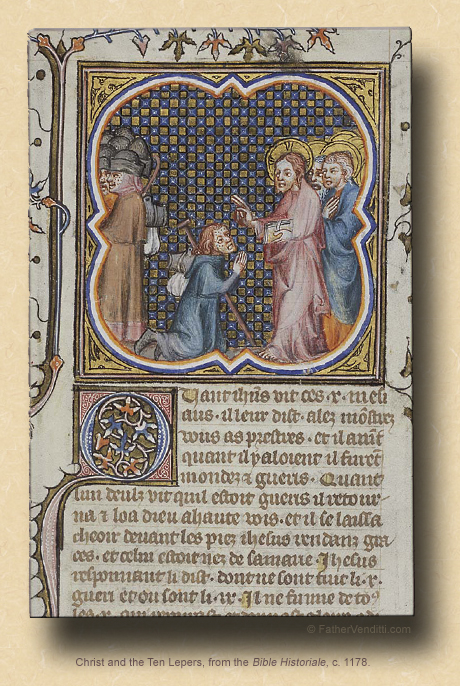 Quant ihūs vit ces .x. meli
aus . il leur dist . alez mōstrez
vous as prestres . et il auīt
quant il y aloient il furēt
mondez & gueris . Quant
lun deulz vit quil estoit gueris il retour
na & loa dieu a haute vois . et il se laissa
cheoir devant les piez ihesus rendanz gra
ces . et celui estoit nez de samarie Ihesus
respounant li dist . dont ne sont tuit li .x.
gueri et ou sont li .ix. Il ne
© FatherVenditti.com
Christ and the Ten Lepers, from the Bible Historiale, c. 1178.